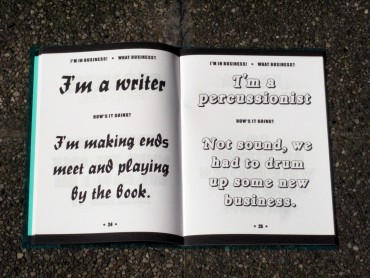 I'M IN BUSINESS! • WHAT BUSINESS?
I'm a writer
HOW'S IT GOING?
I'm making ends
meet and playing
by the book.
• 24 •
I'M IN BUSINESS! • WHAT BUSINESS?
I'm a
percussionist
HOW'S IT GOING?
Not sound, we
had to drum
up some new
business.
• 25 •